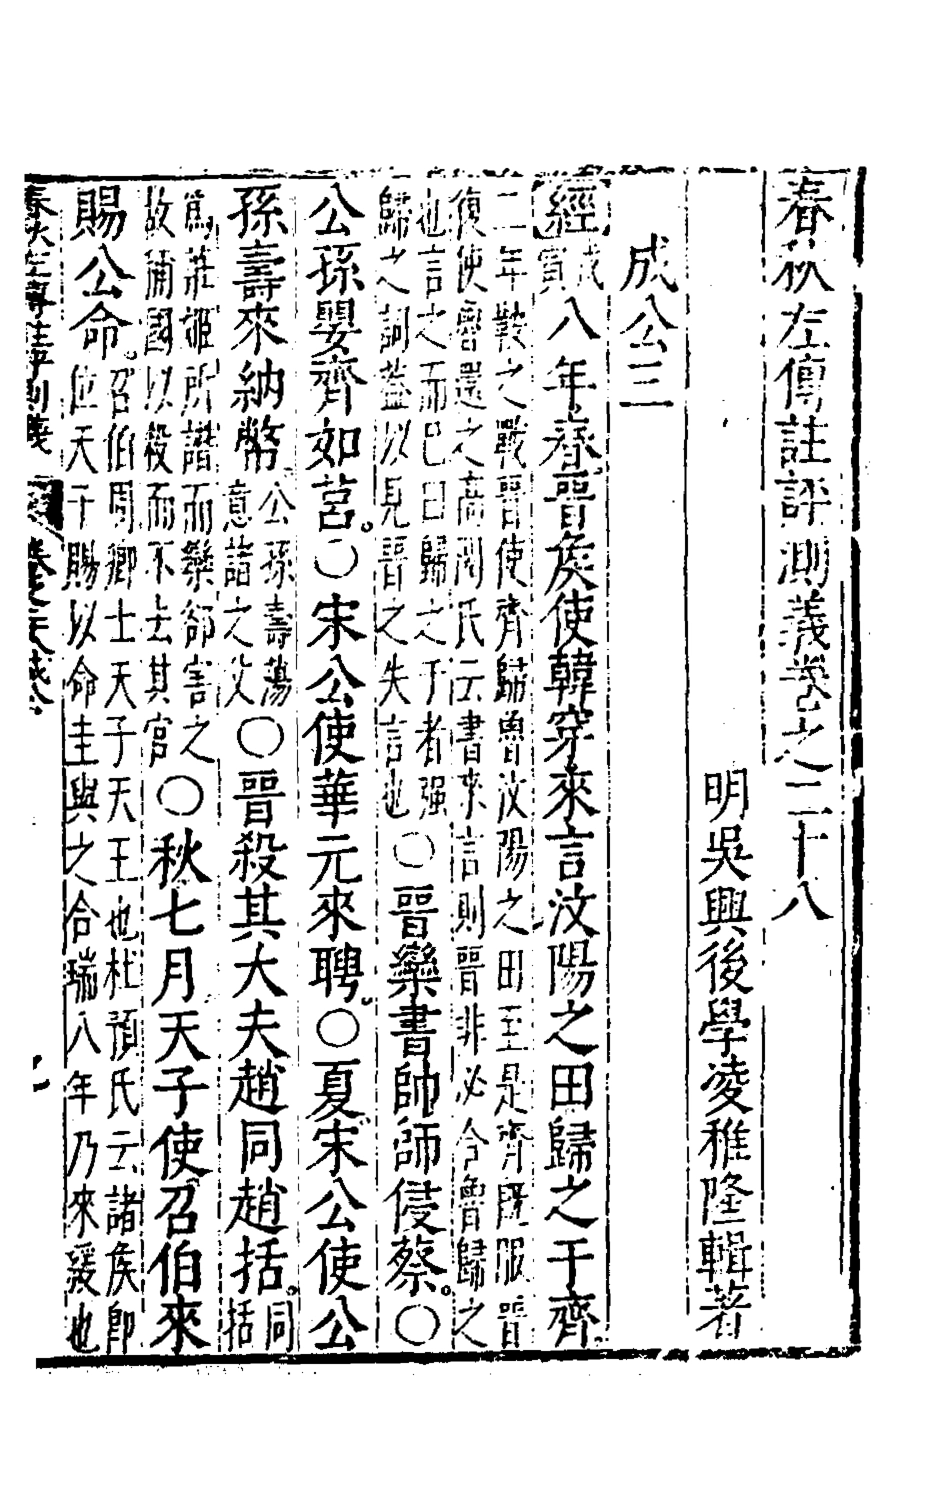 春秋左傳註評測義卷之二十八
明吳興後學凌稚隆輯著
成公三
經戊寅八年春晉侯使韓穿來言汶陽之田歸之于齊
二年鞍之戰晉使齊歸魯汶陽之田至是齊既服晉
復使魯還之高閌氏云書來言則晉非必令魯歸之
也言之而已曰歸之于者强
歸之詞蓋以見晉之失言也
○晉欒書帥師侵蔡○
公孫嬰齊如莒○宋公使華元來聘○夏宋公使公
孫壽來納幣
公孫壽蕩
意諸之父
○晉殺其大夫趙同趙括
同
括
爲莊姬所譖而欒郤害之
故稱國以殺而不去其官
○秋七月天子使召伯來
賜公命
召伯周卿士天子天王也杜預氏云諸侯即
位天子賜以命圭與之合瑞八年乃來緩也
春秋左傳註評測義